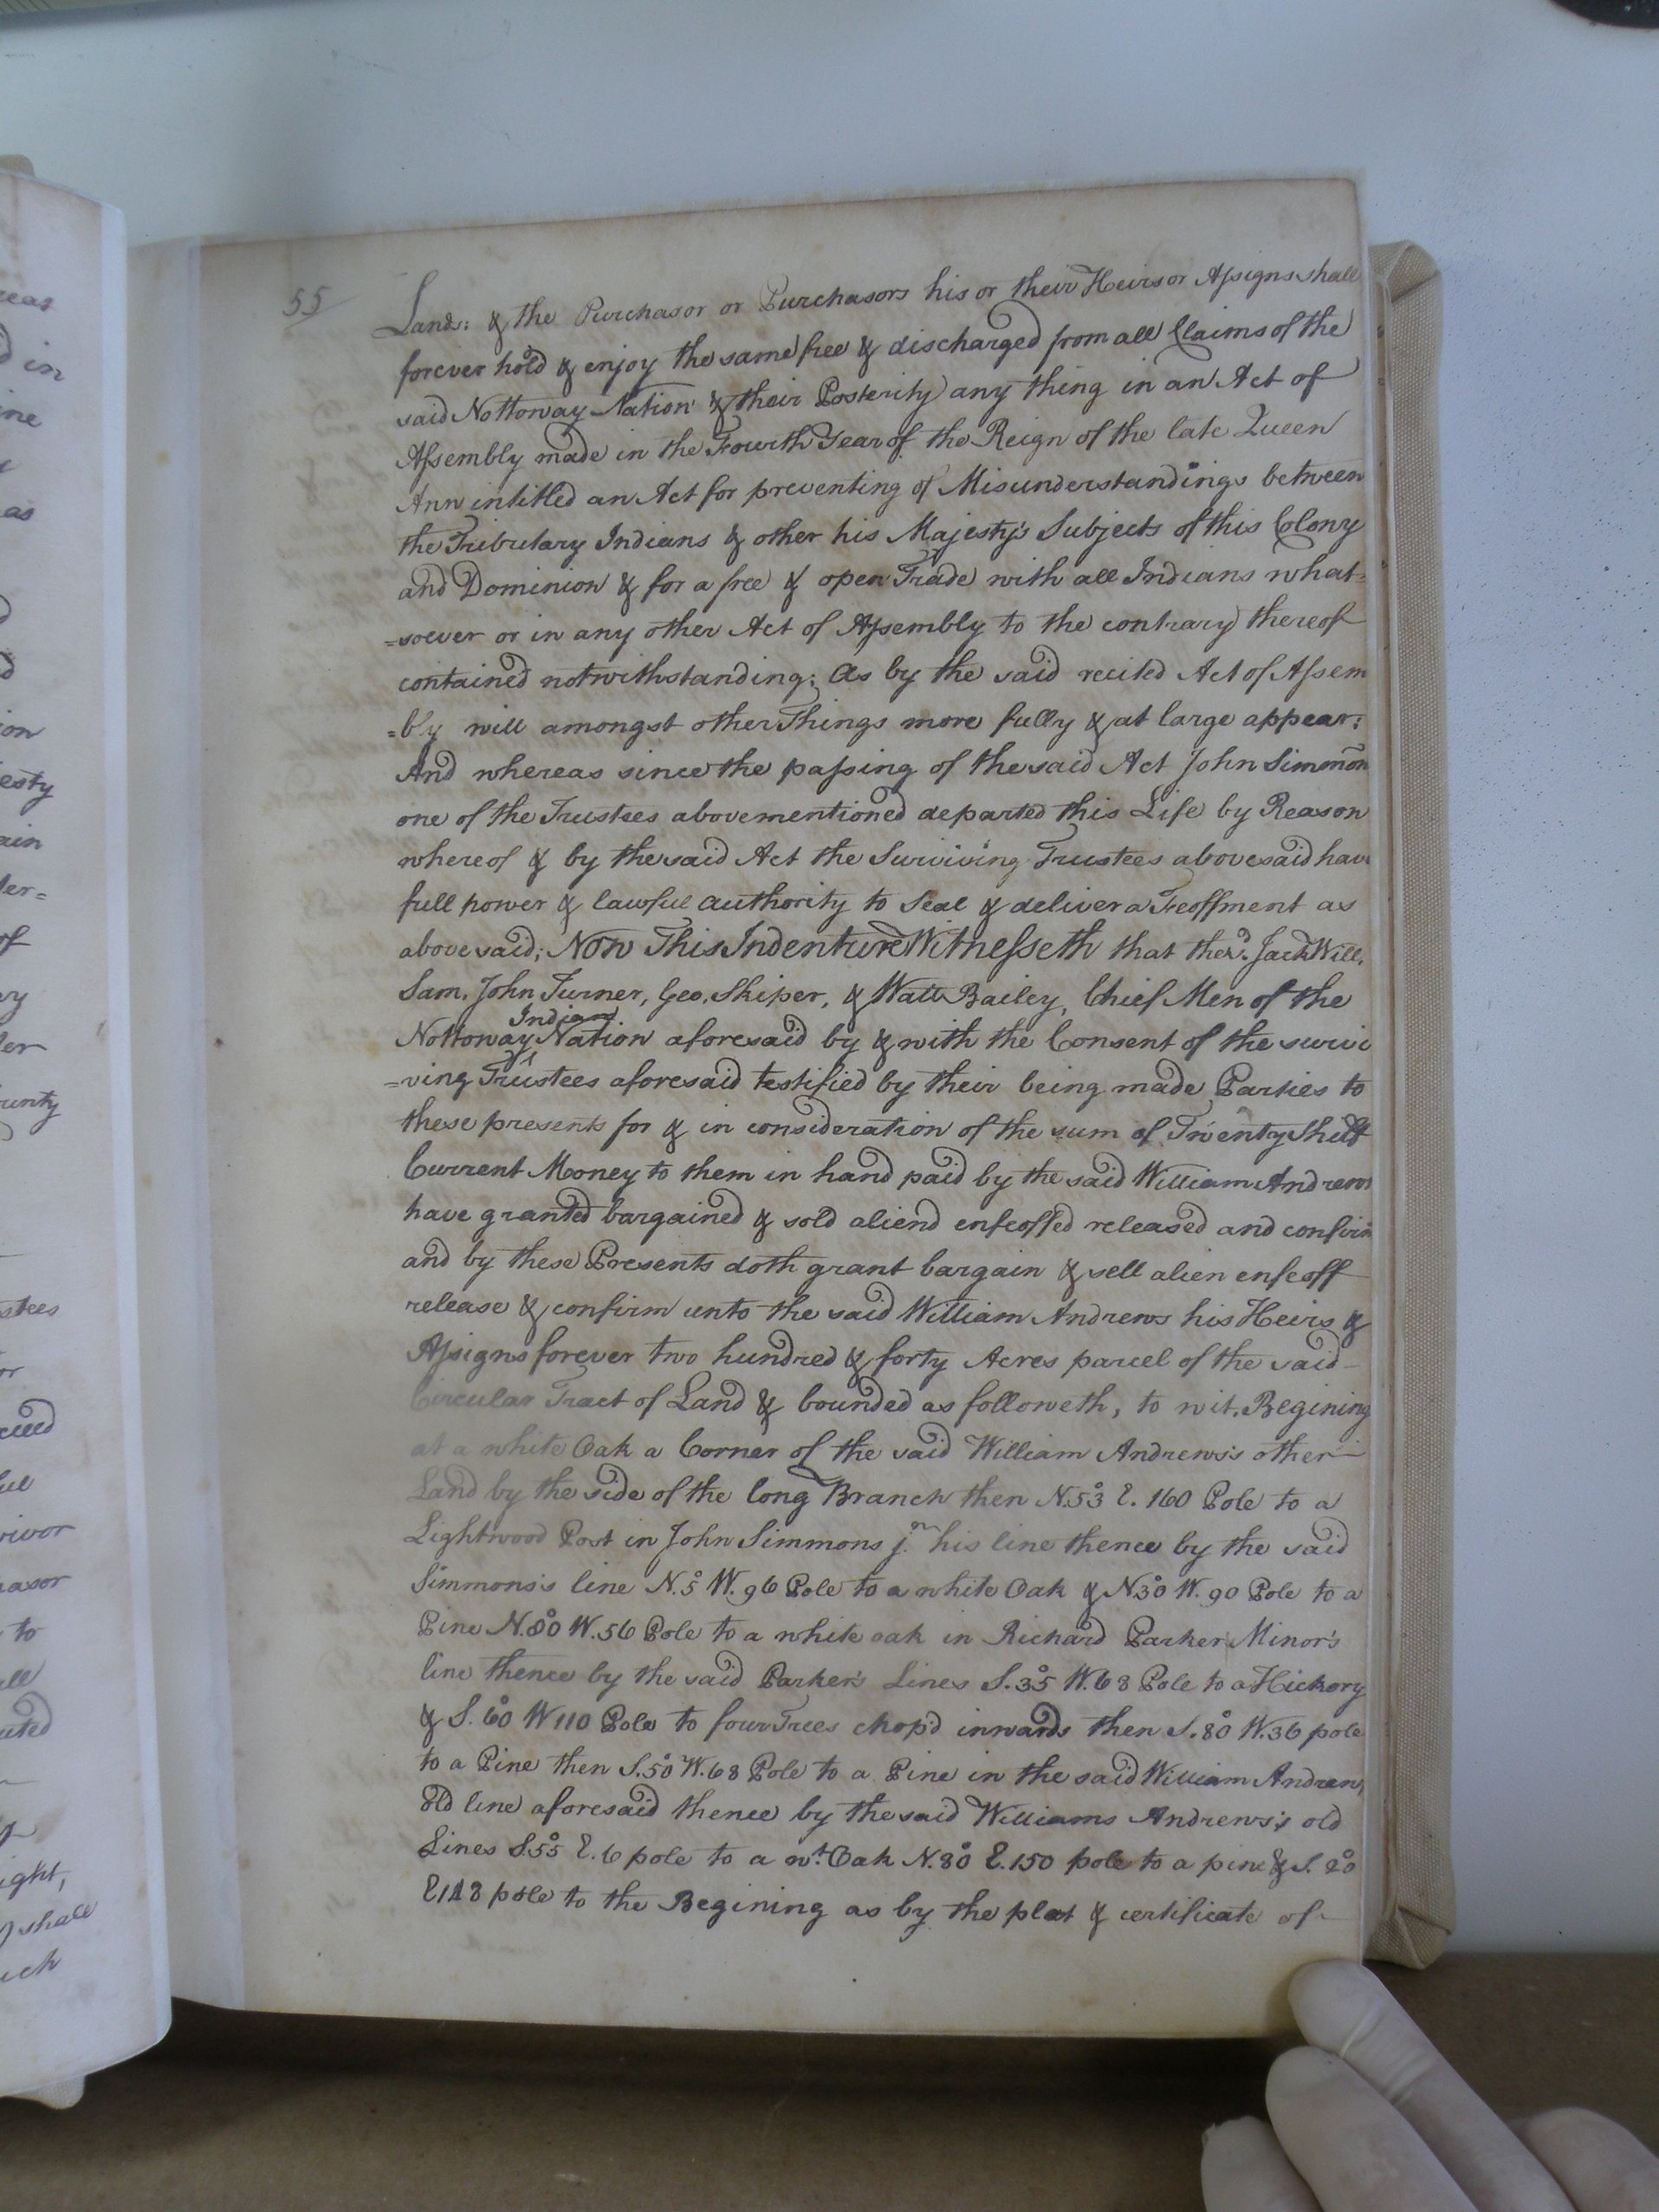 55
Land: & the Purchasor or Purchasors his or their Heirs or Assigns shall
forever hold & enjoy the same free & discharged from all Claims of the
said Nottoway Nation & their Posterity any thing in an Act of
Assembly made in the Fourth Year of the Reign of the late Queen
Ann intitled an Act for preventing of Misunderstandings between
the Tributary Indians & other his Majesty's Subjects of this Colony
and Dominion & for a free & open Trade with all Indians what=
=soever or in any other Act of Assembly to the contrary thereof
contained notwithstanding: As by the said recited Act of Assem
=bly will amongst other Things more fully & at large appear:
And whereas since the passing of the said Act John Simmon
one of the Trustees abovementioned departed this Life by Reason
whereof & by the said Act the Surviving Trustees abovesaid have
full power & lawful authority to Seal & deliver a Feoffment as
abovesaid; Now This Indenture Witnesseth that the sd. Jack Will,
Sam, John Turner, Geo. Skiper, & Watt Bailey, Chief Men of the
Nottoway Indian Nation aforesaid by & with the Consent of the survi
=ving Trustees aforesaid testified by their being made Parties to
these presents for & in consideration of the sum of Twenty Shill
Current Money to them in hand paid by the said William Andrews
have granted bargained & sold aliend enfeoffed released and confirm
and by these Presents doth grant bargain & sell alien enfeoff
release & confirm unto the said William Andrews his Heirs &
Assigns forever two hundred & forty Acres parcel of the said
Circular Tract of Land & bounded as followeth, to wit, Begining
at a white Oak a Corner of the said William Andrews's other
Land by the side of the long Branch then N.53° E. 160 Pole to a
Lightwood Post in John Simmons jr. his line thence by the said
Simmons's line N.5° W. 96 Pole to a white Oak & N.30° W. 90 Pole to a
Pine N.80° W. 56 Pole to a white oak in Richard Parker Minor's
line thence by the said Parker's Lines S.35° W. 68 Pole to a Hickory
& S. 60° W 110 Pole to four Trees chop'd inwards then S. 80° W. 36 pole
to a Pine then S. 50° W. 68 Pole to a Pine in the said William Andrews
old line aforesaid thence by the said Williams Andrews's old
Lines S.55° E. 6 pole to a wt. Oak N. 80° E. 150 pole to a pine & S. 20°
E 148 pole to the Begining as by the plat & certificate of